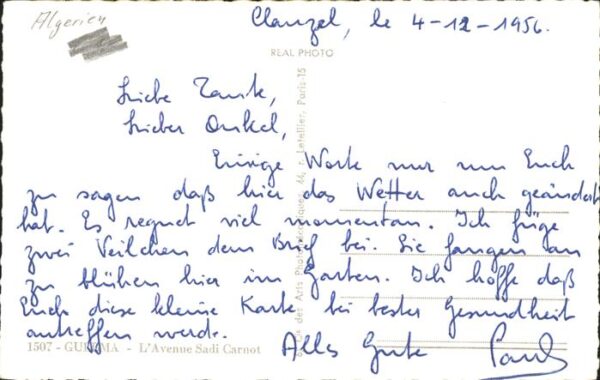 Algerien
Clauzel, le 4-12-1956.
REAL PHOTO
Liebe Tante,
Lieber Onkel,
Einige Worte nur um Euch
zu sagen daß hier das Wetter auch geändert
hat. Es regnet viel momentan. Ich füge
zwei Veilchen dem Brief bei. Sie fangen an
zu blühen hier im Garten. Ich hoffe daß
Euch diese kleine Karte bei bester Gesundheit
antreffen werde.
Alles Gute Paul
1507 - GUELMA - L'Avenue Sadi Carnot
des Arts 44, r. Letellier, Paris-15